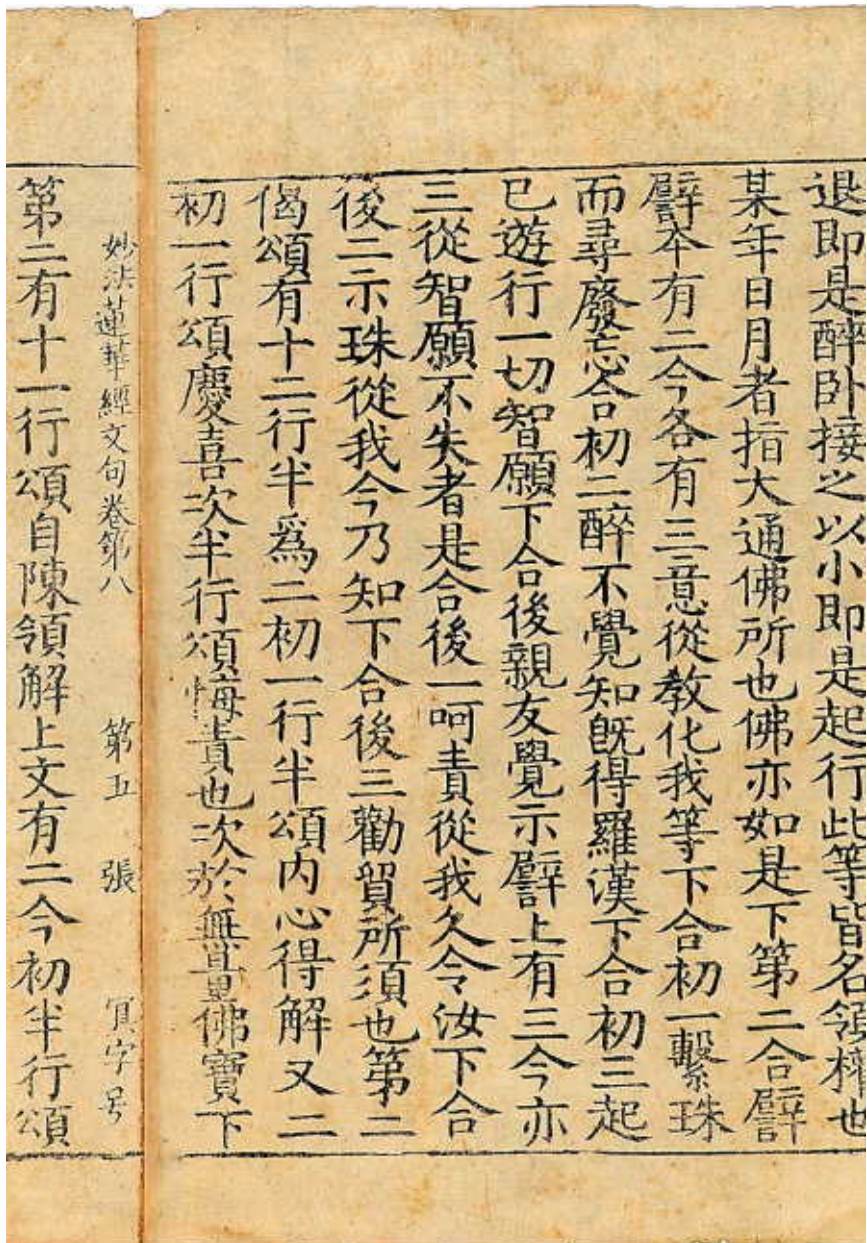 退即是醉卧接之以小即是起行此等皆名領權也
某年日月者指大通佛所也佛亦如是下第二合譬
譬本有二今各有三意從教化我等下合初一繫珠
而尋廢忘合初二醉不覺知既得羅漢下合初三起
已遊行一切智願下合後親友覺示譬上有三今亦
三從智願不失者是合後一呵責從我久令汝下合
後二示珠從我今乃知下合後三勸貿所須也第二
偈頌有十二行半爲二初一行半頌内心得解又二
初一行頌慶喜次半行頌悔責也次於無量佛寶下
妙法蓮華經文句卷第八 第五 張 㝠字号
第二有十一行頌自陳領解上文有二今初半行頌